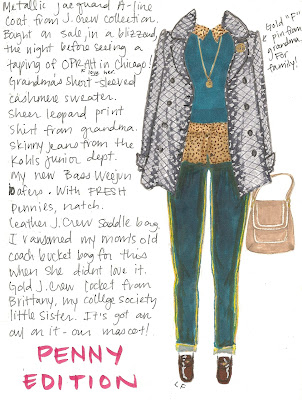 Metallic jacquard A-line
coat from J. Crew collection.
Bought on sale, in a blizzard,
the night before seeing a
taping of OPRAH in Chicago!
* I love her.
Grandma's short-sleeved
cashmere sweater.
sheer leopard print
shirt from grandma.
skinny jeans from the
Kohls junior dept.
My new Bass Weejun
loafers. With FRESH
pennies, natch.
Leather J. Crew Saddle bag
I ransomed my mom's old
coach bucket bag for this
when she didnt love it.
Gold J. Crew locket from
Brittany, my college society
little sister. It's got an
owl on it - our mascot!
PENNY
EDITION
Gold "F"
pin from
grandma
J FOR
family!
CF